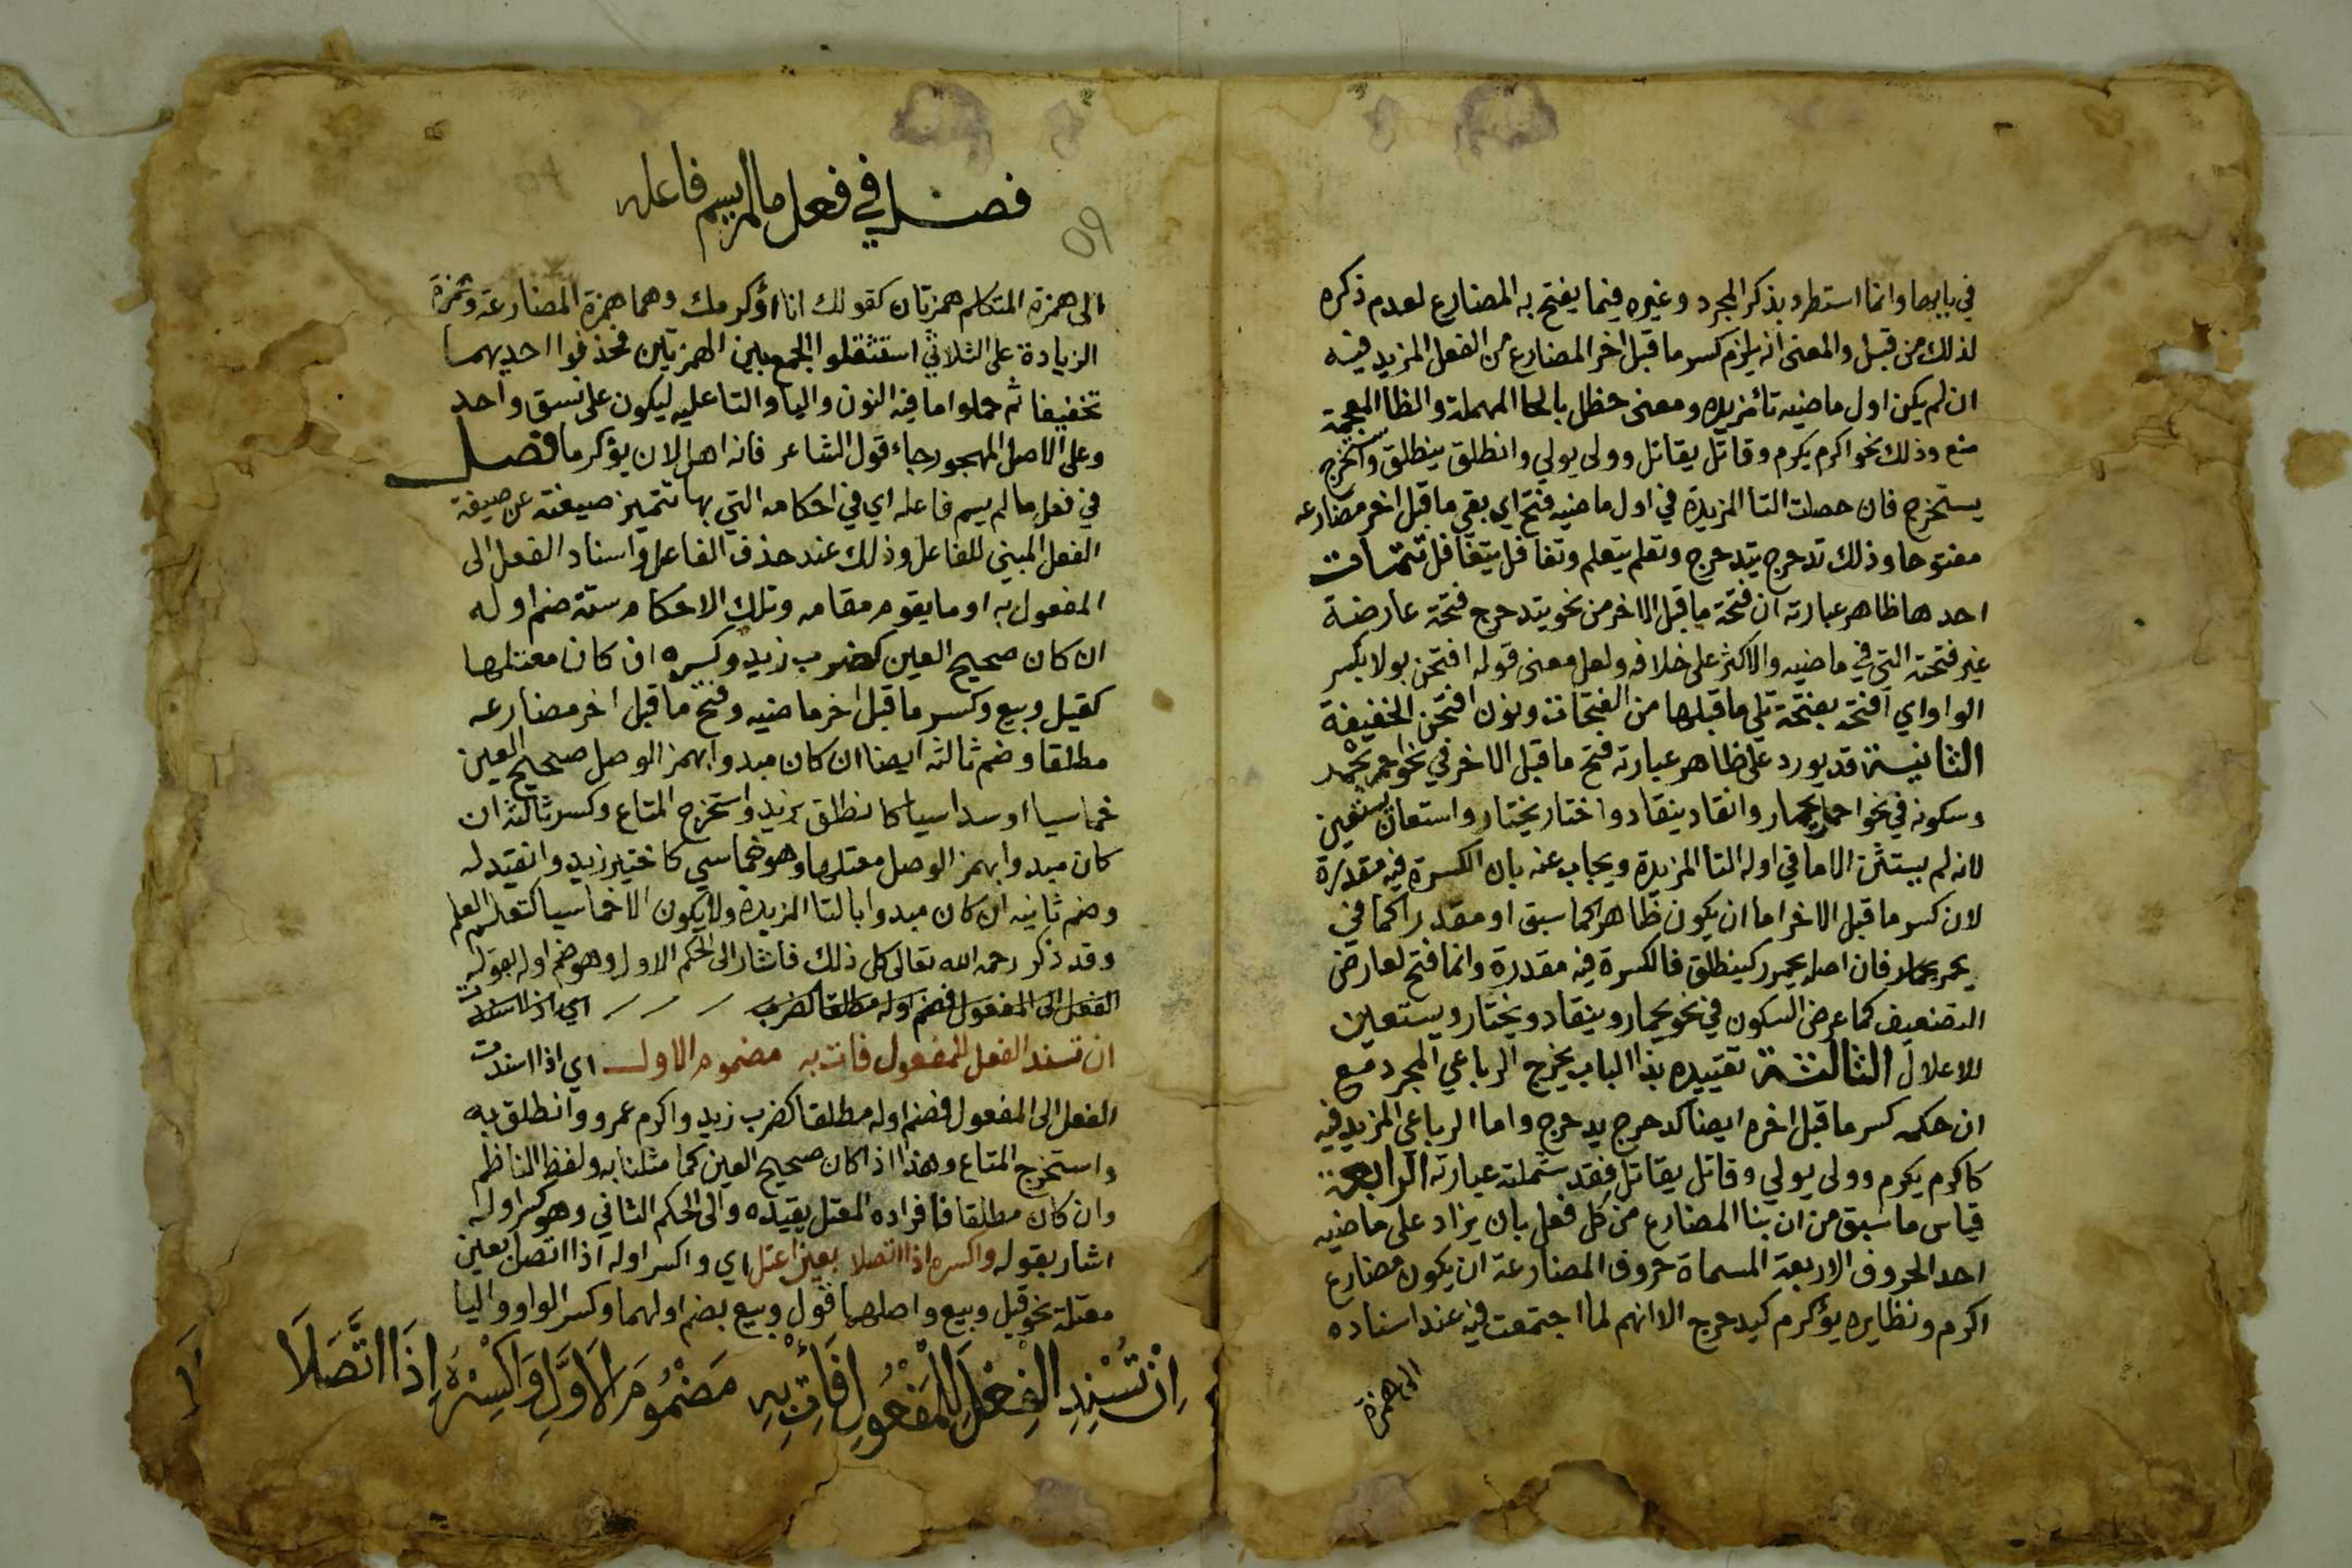 في بابها وانما استطرد بذكر المجرد وغيره فيما يفتح به المضارع لعدم ذكره
لذلك من قبل والمعنى انه يلزم كسر ما قبل اخر المضارع من الفعل المزيد فيه
ان لم يكن اول ماضيه تا مزيده ومعنى حظل بالحا المهملة والظا المعجمة
منع وذلك نحو اكرم يكرم وقاتل يقاتل وولى يولي وانطلق ينطلق واستخرج
يستخرج فان حصلت التا المزيدة في اول ماضيه فتح اي بقي ما قبل اخر مضارعه
مفتوحا وذلك تدحرج يتدحرج وتعلم يتعلم وتغافل يتغافل تتمات
احدها ظاهر عبارته ان فتحة ما قبل الاخر من نحو يتدحرج فتحة عارضة
غير فتحته التي في ماضيه والاكثر على خلافه ولعل معنى قوله افتحن بولا بكسر
الواو اي افتحه بفتحة تلي ما قبلها من الفتحات ونون افتحن الخفيفة
الثانية قد يورد على ظاهر عبارته فتح ما قبل الاخر في نحو احمر يحمر
وسكونه في نحو احمار يحمار وانقاد ينقاد واختار يختار واستعان يستعين
لانه لم يستثن الا ما في اوله التا المزيدة ويجاب عنه بان الكسرة فيه مقدرة
لان كسر ما قبل الاخر اما ان يكون ظاهرا كما سبق او مقدرا كما في
يحمر يحمار فان اصله يحمرر كينطلق فالكسرة فيه مقدرة وانما فتح لعارض
التضعيف كما عرض السكون في نحو يحمار وينقاد ويختار ويستعين
للاعلال الثالثة تقييده بذا الباب يخرج الرباعي المجرد مع
ان حكمه كسر ما قبل اخره ايضا كدحرج يدحرج واما الرباعي المزيد فيه
كاكرم يكرم وولى يولي وقاتل يقاتل فقد شملته عبارته الرابعة
قياس ما سبق من ان بنا المضارع من كل فعل بان يزاد على ماضيه
احد الحروف الاربعة المسماة حروف المضارعة ان يكون مضارع
اكرم ونظايره يؤكرم كيدحرج الا انهم لما اجتمعت فيه عند اسناده
الى همزة
فصل في فعل ما لم يسم فاعله
٥٩
الى همزة المتكلم همزتان كقولك انا اؤكرمك وهما همزة المضارعة وهمزة
الزيادة على الثلاثي استثقلوا الجمع بين الهمزتين فحذفوا احديهما
تخفيفا ثم حملوا ما فيه النون واليا والتا عليه ليكون على نسق واحد
وعلى الاصل المهجور جاء قول الشاعر فانه اهل لان يؤكرما فصل
في فعل ما لم يسم فاعله اي في احكامه التي بها تتميز صيغته عن صيغة
الفعل المبني للفاعل وذلك عند حذف الفاعل واسناد الفعل الى
المفعول به او ما يقوم مقامه وتلك الاحكام ستة ضم اوله
ان كان صحيح العين كضرب زيد وكسره ان كان معتلها
كقيل وبيع وكسر ما قبل اخر ماضيه وفتح ما قبل اخر مضارعه
مطلقا وضم ثالثه ايضا ان كان مبدوا بهمز الوصل صحيح العين
خماسيا او سداسيا كانطلق بزيد واستخرج المتاع وكسر ثالثه ان
كان مبدوا بهمز الوصل معتلها وهو خماسي كاختير زيد وانقيد له
وضم ثانيه ان كان مبدوا بالتا المزيدة ولا يكون الا خماسيا كتعلم العلم
وقد ذكر رحمه الله تعالى كل ذلك فاشار الى الحكم الاول وهو ضم اوله بقوله
الفعل الى المفعول فضم اوله مطلقا كضرب اي اذا اسندت
ان تسند الفعل للمفعول فات به مضموم الاول اي اذا اسندت
الفعل الى المفعول فضم اوله مطلقا كضرب زيد واكرم عمرو وانطلق به
واستخرج المتاع وهذا اذا كان صحيح العين كما مثلنا به ولفظ الناظم
وان كان مطلقا فافراده المعتل يقيده والى الحكم الثاني وهو كسر اوله
اشار بقوله واكسره اذا اتصلا بعين اعتل اي واكسر اوله اذا اتصل بعين
معتلة نحو قيل وبيع واصلهما قول وبيع بضم اولهما وكسر الواو واليا
اِنْ تُسْنِدِ الفِعْلَ لِلْمَفْعُولِ فَأْتِ بِهِ مَضْمُومَ الاَوَّلِ وَاكْسِرْهُ اِذَا اتَّصَلَا